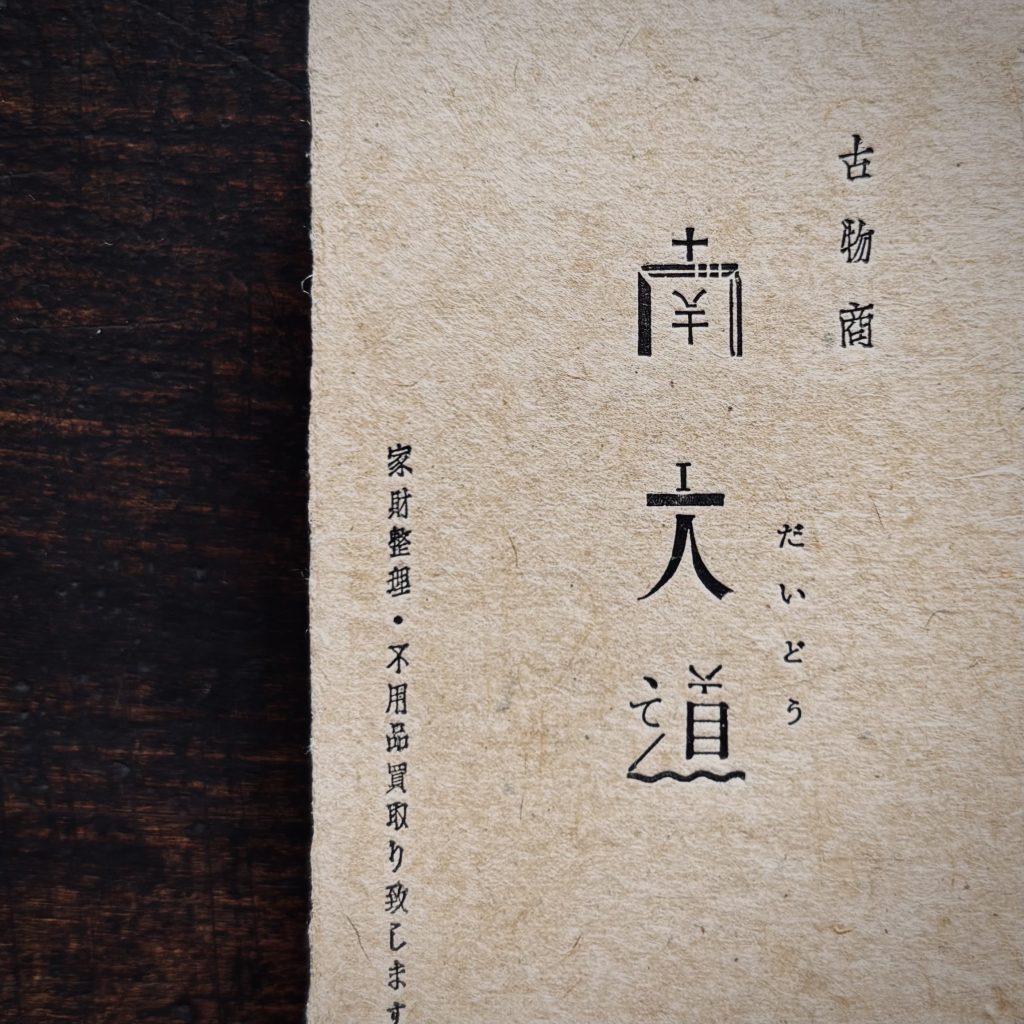 古物商
南大道
だいどう
家財整理・不用品買取り致します